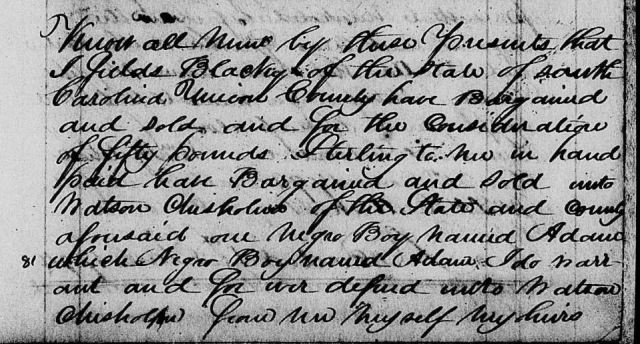 Know all Men by these Presents that
I Fields Blacky of the State of South
Carolina Union County have Bargained
and sold and for the Consideration
of fifty pounds Sterling to me in hand
paid have Bargained and sold unto
Watson Chisholm of the State and County
aforesaid one Negro Boy named Adam
81 which Negro Boy named Adam I do warr
ant and for ever defend unto Watson
Chisholm from me myself my heirs